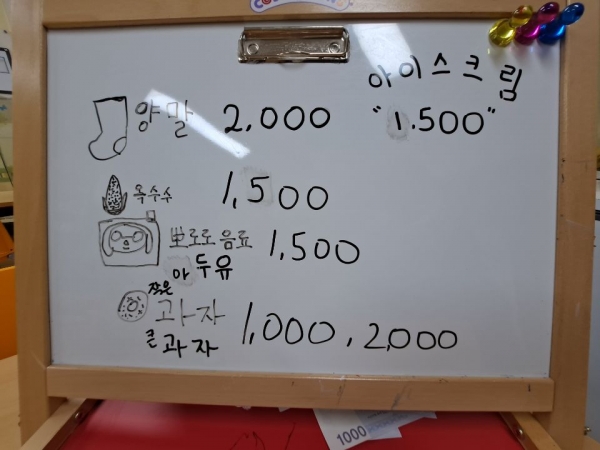 아이스크림
"1.500"
양말 2,000
옥수수 1,500
뽀로로음료 1,500
아두유
작은 과자 1,000, 2,000
큰 과자
1000